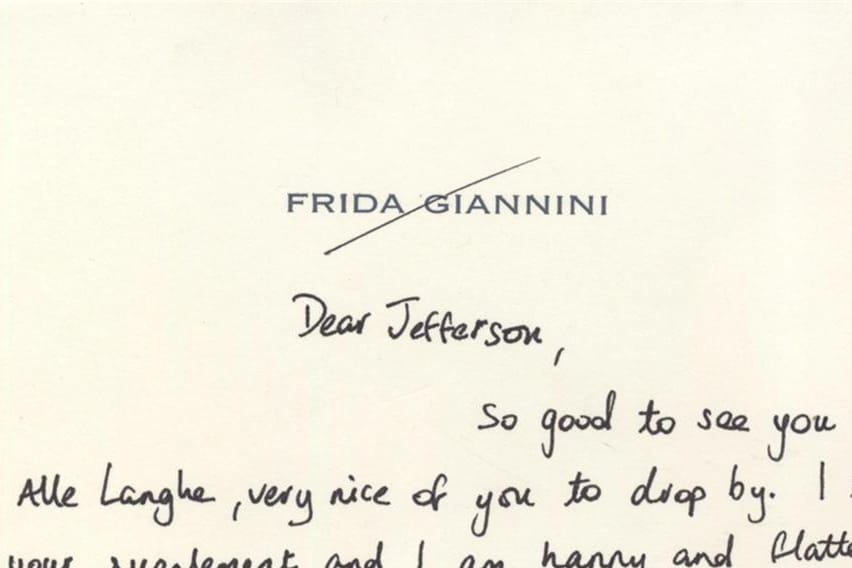 FRIDA GIANNINI
Dear Jefferson,
So good to see you
Alle Langhe, very nice of you to drop by. I
your supplement and I am happy and flatte